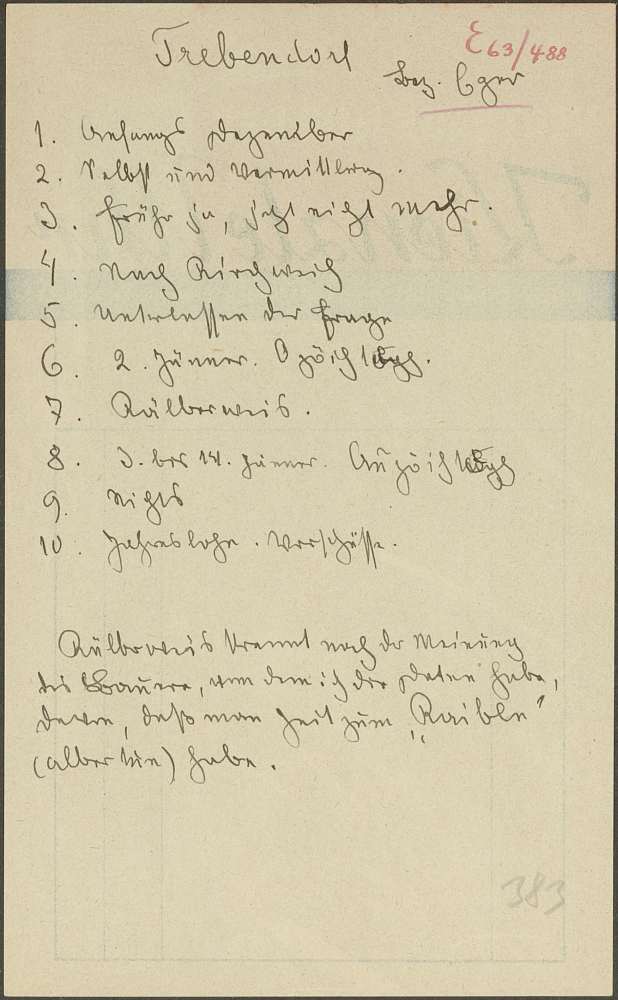 Trebendorf
E63/488
Bez. Eger
1. Anfangs Dezember
2. Selbst und Vermittlung.
3. Früher ja, jetzt nicht mehr.
4. Nach Kirchweih
5. Unterlassen der Frage
6. 2. Jänner.
7. Kälberweis.
8. 3. bis 14. Jänner.
9. Nichts
10. Jahreslohn. Vorschüsse.
Kälberweis kommt nach der Meinung
des Bauern, von dem ich die Daten habe,
davon, daß man Zeit zum „Kaibln"
(albern tun) habe.
383